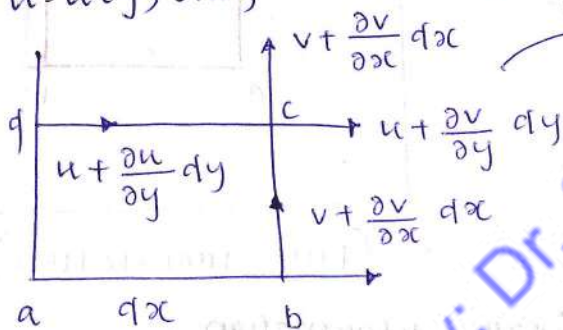 v + ∂v/∂x dx
d
c
u + ∂v/∂y dy
u + ∂u/∂y dy
v + ∂v/∂x dx
a dx b
Dr.